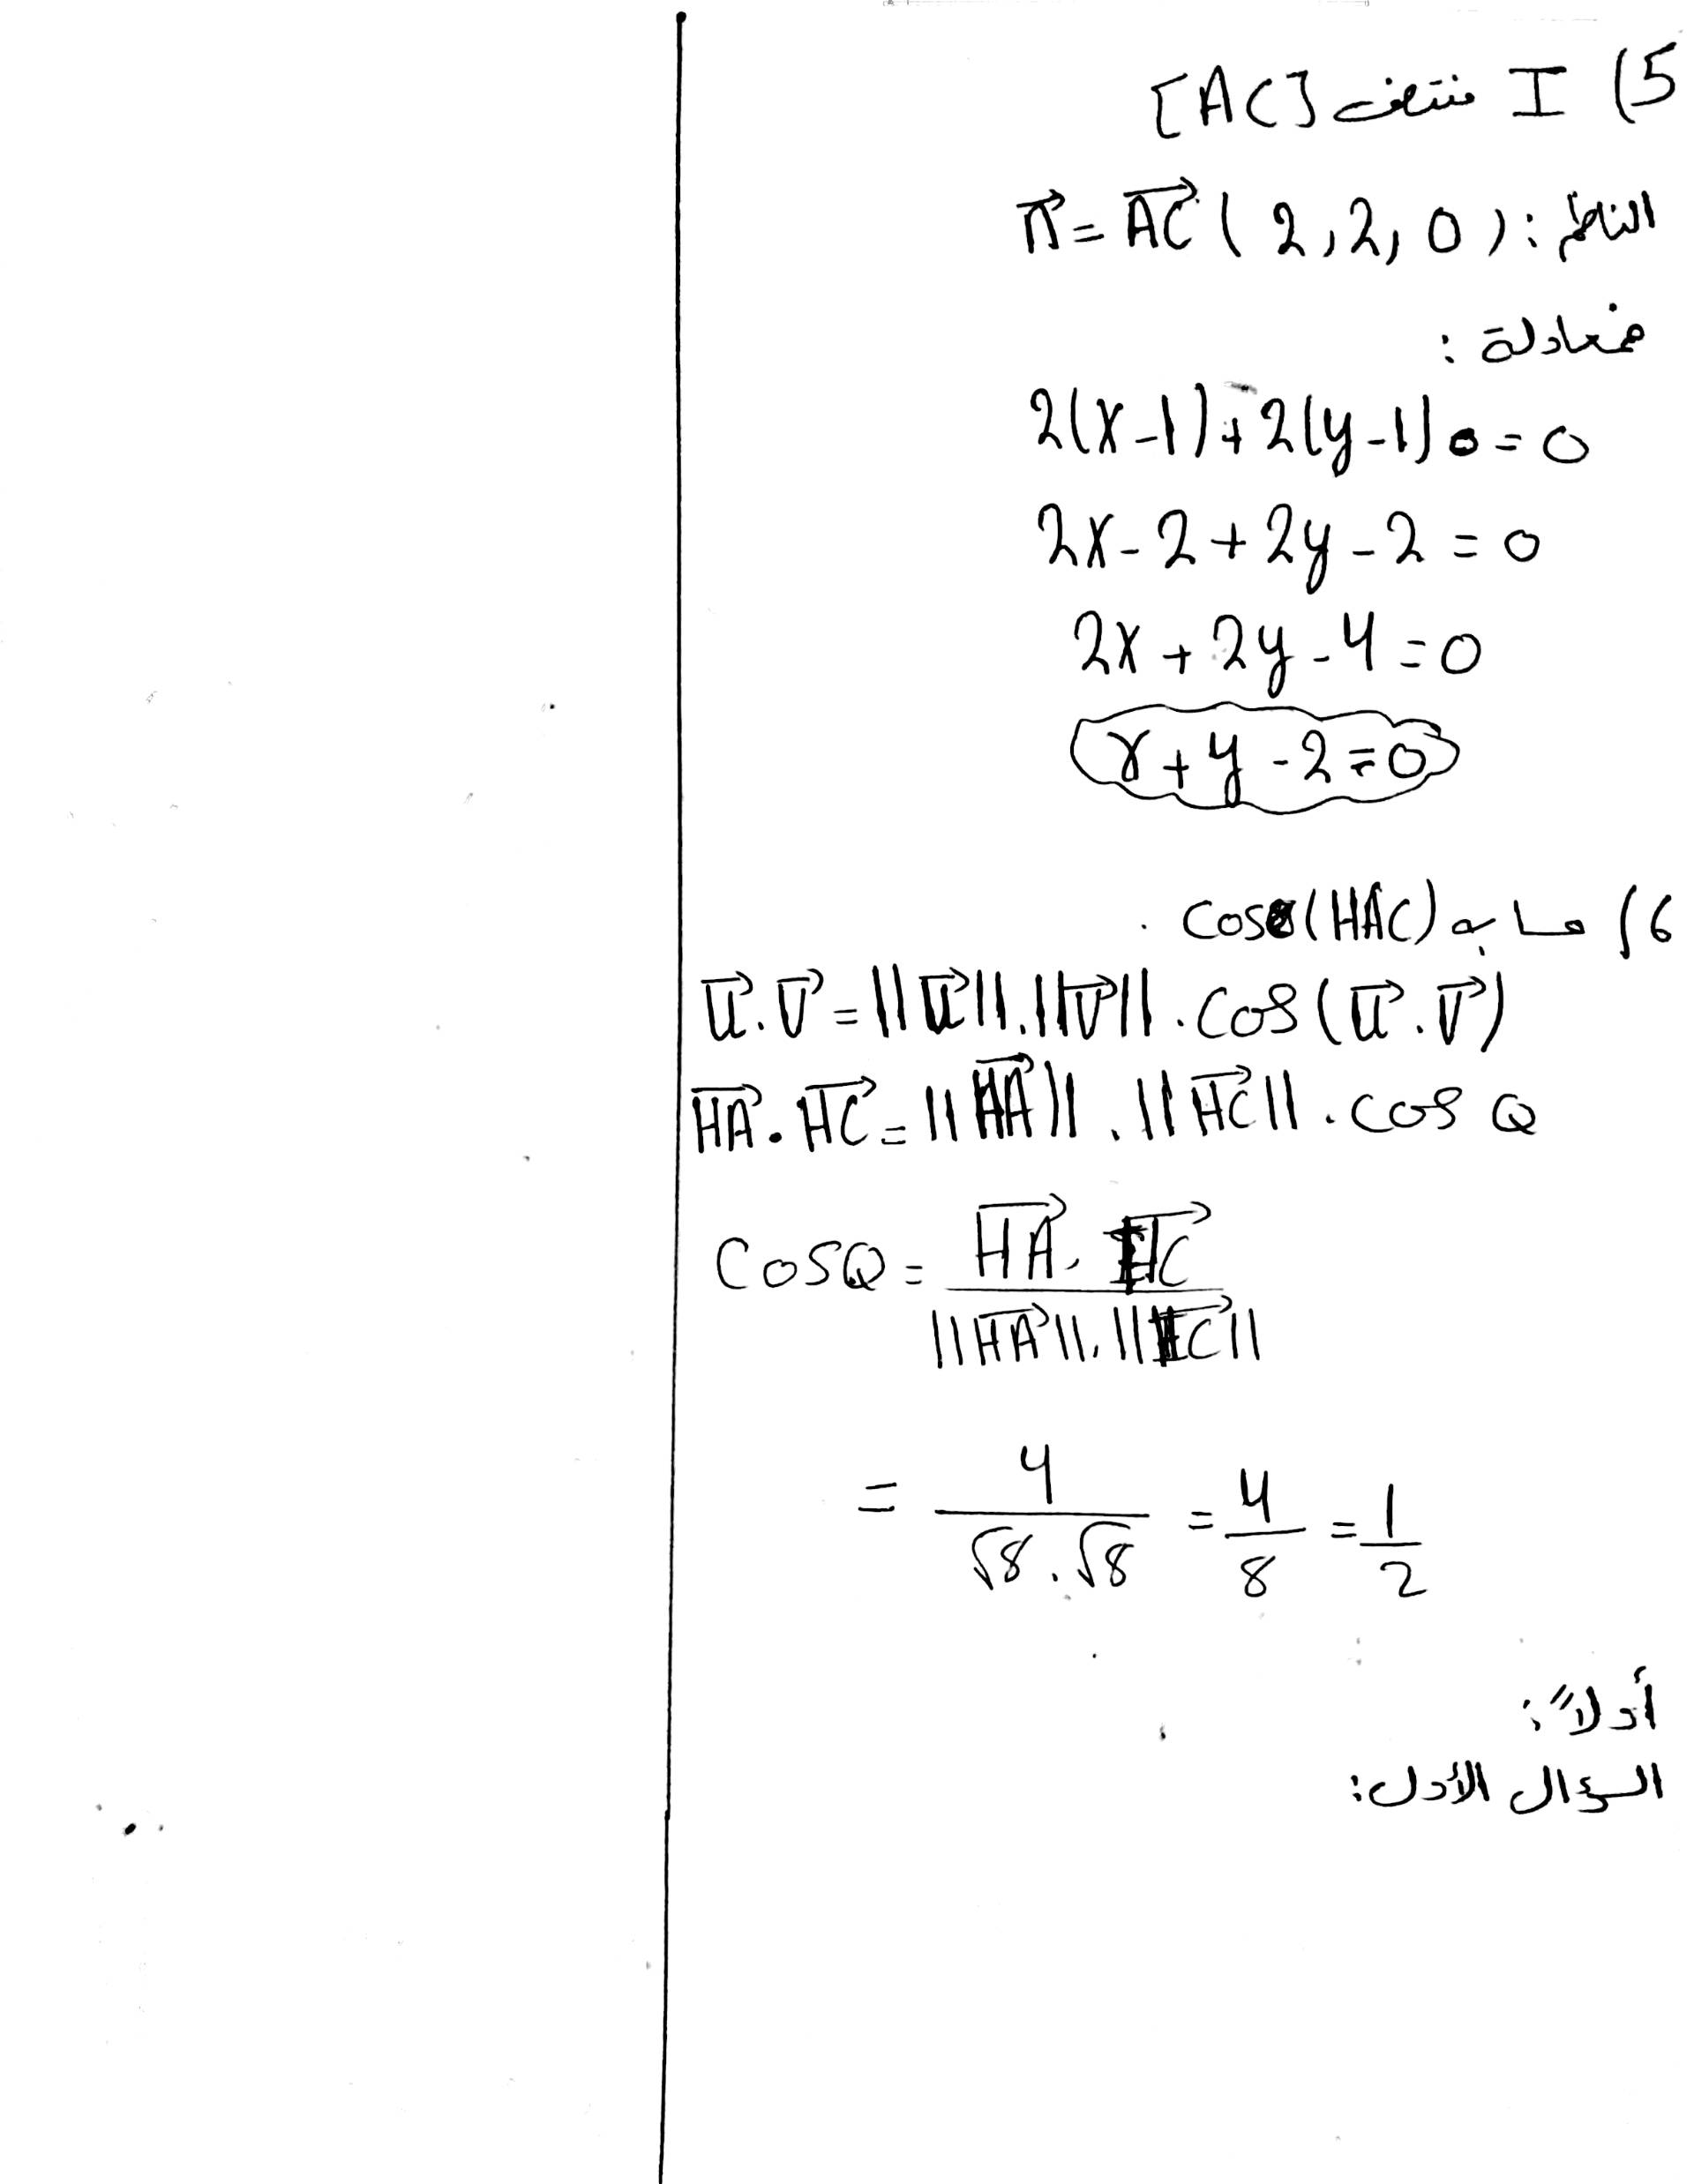 5) I منتصف [AC]
الناظم: n⃗ = AC⃗ (2, 2, 0)
معادلة:
2(x-1)+2(y-1)=0
2x-2+2y-2=0
2x+2y-4=0
x+y-2=0
6) حساب cos(HÂC).
u⃗.v⃗=||u⃗||.||v⃗||.cos(u⃗.v⃗)
HA⃗.HC⃗=||HA⃗||.||HC⃗||.cos Q
cosQ = HA⃗.HC⃗ / ||HA⃗||.||HC⃗||
= 4/(√8.√8) = 4/8 = 1/2
أولاً:
السؤال الأول: